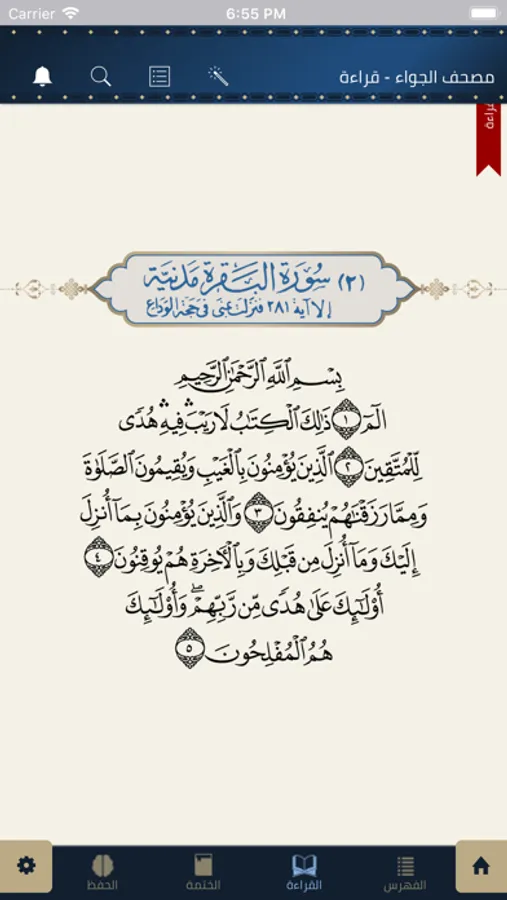 Carrier 6:55 PM
مصحف الجواء - قراءة
قراءة
(٢) سُورَةُ البَقَرَةِ مَدَنِيَّة
إلا آية ٢٨١ فنزلت بمنى في حجة الوداع
بِسْمِ اللَّهِ الرَّحْمَٰنِ الرَّحِيمِ
الٓمٓ ١ ذَٰلِكَ الْكِتَٰبُ لَا رَيْبَ ۛ فِيهِ ۛ هُدًى
لِّلْمُتَّقِينَ ٢ الَّذِينَ يُؤْمِنُونَ بِالْغَيْبِ وَيُقِيمُونَ الصَّلَوٰةَ
وَمِمَّا رَزَقْنَٰهُمْ يُنفِقُونَ ٣ وَالَّذِينَ يُؤْمِنُونَ بِمَآ أُنزِلَ
إِلَيْكَ وَمَآ أُنزِلَ مِن قَبْلِكَ وَبِالْءَاخِرَةِ هُمْ يُوقِنُونَ ٤
أُولَٰٓئِكَ عَلَىٰ هُدًى مِّن رَّبِّهِمْ ۖ وَأُولَٰٓئِكَ
هُمُ الْمُفْلِحُونَ ٥
الفهرس القراءة الختمة الحفظ